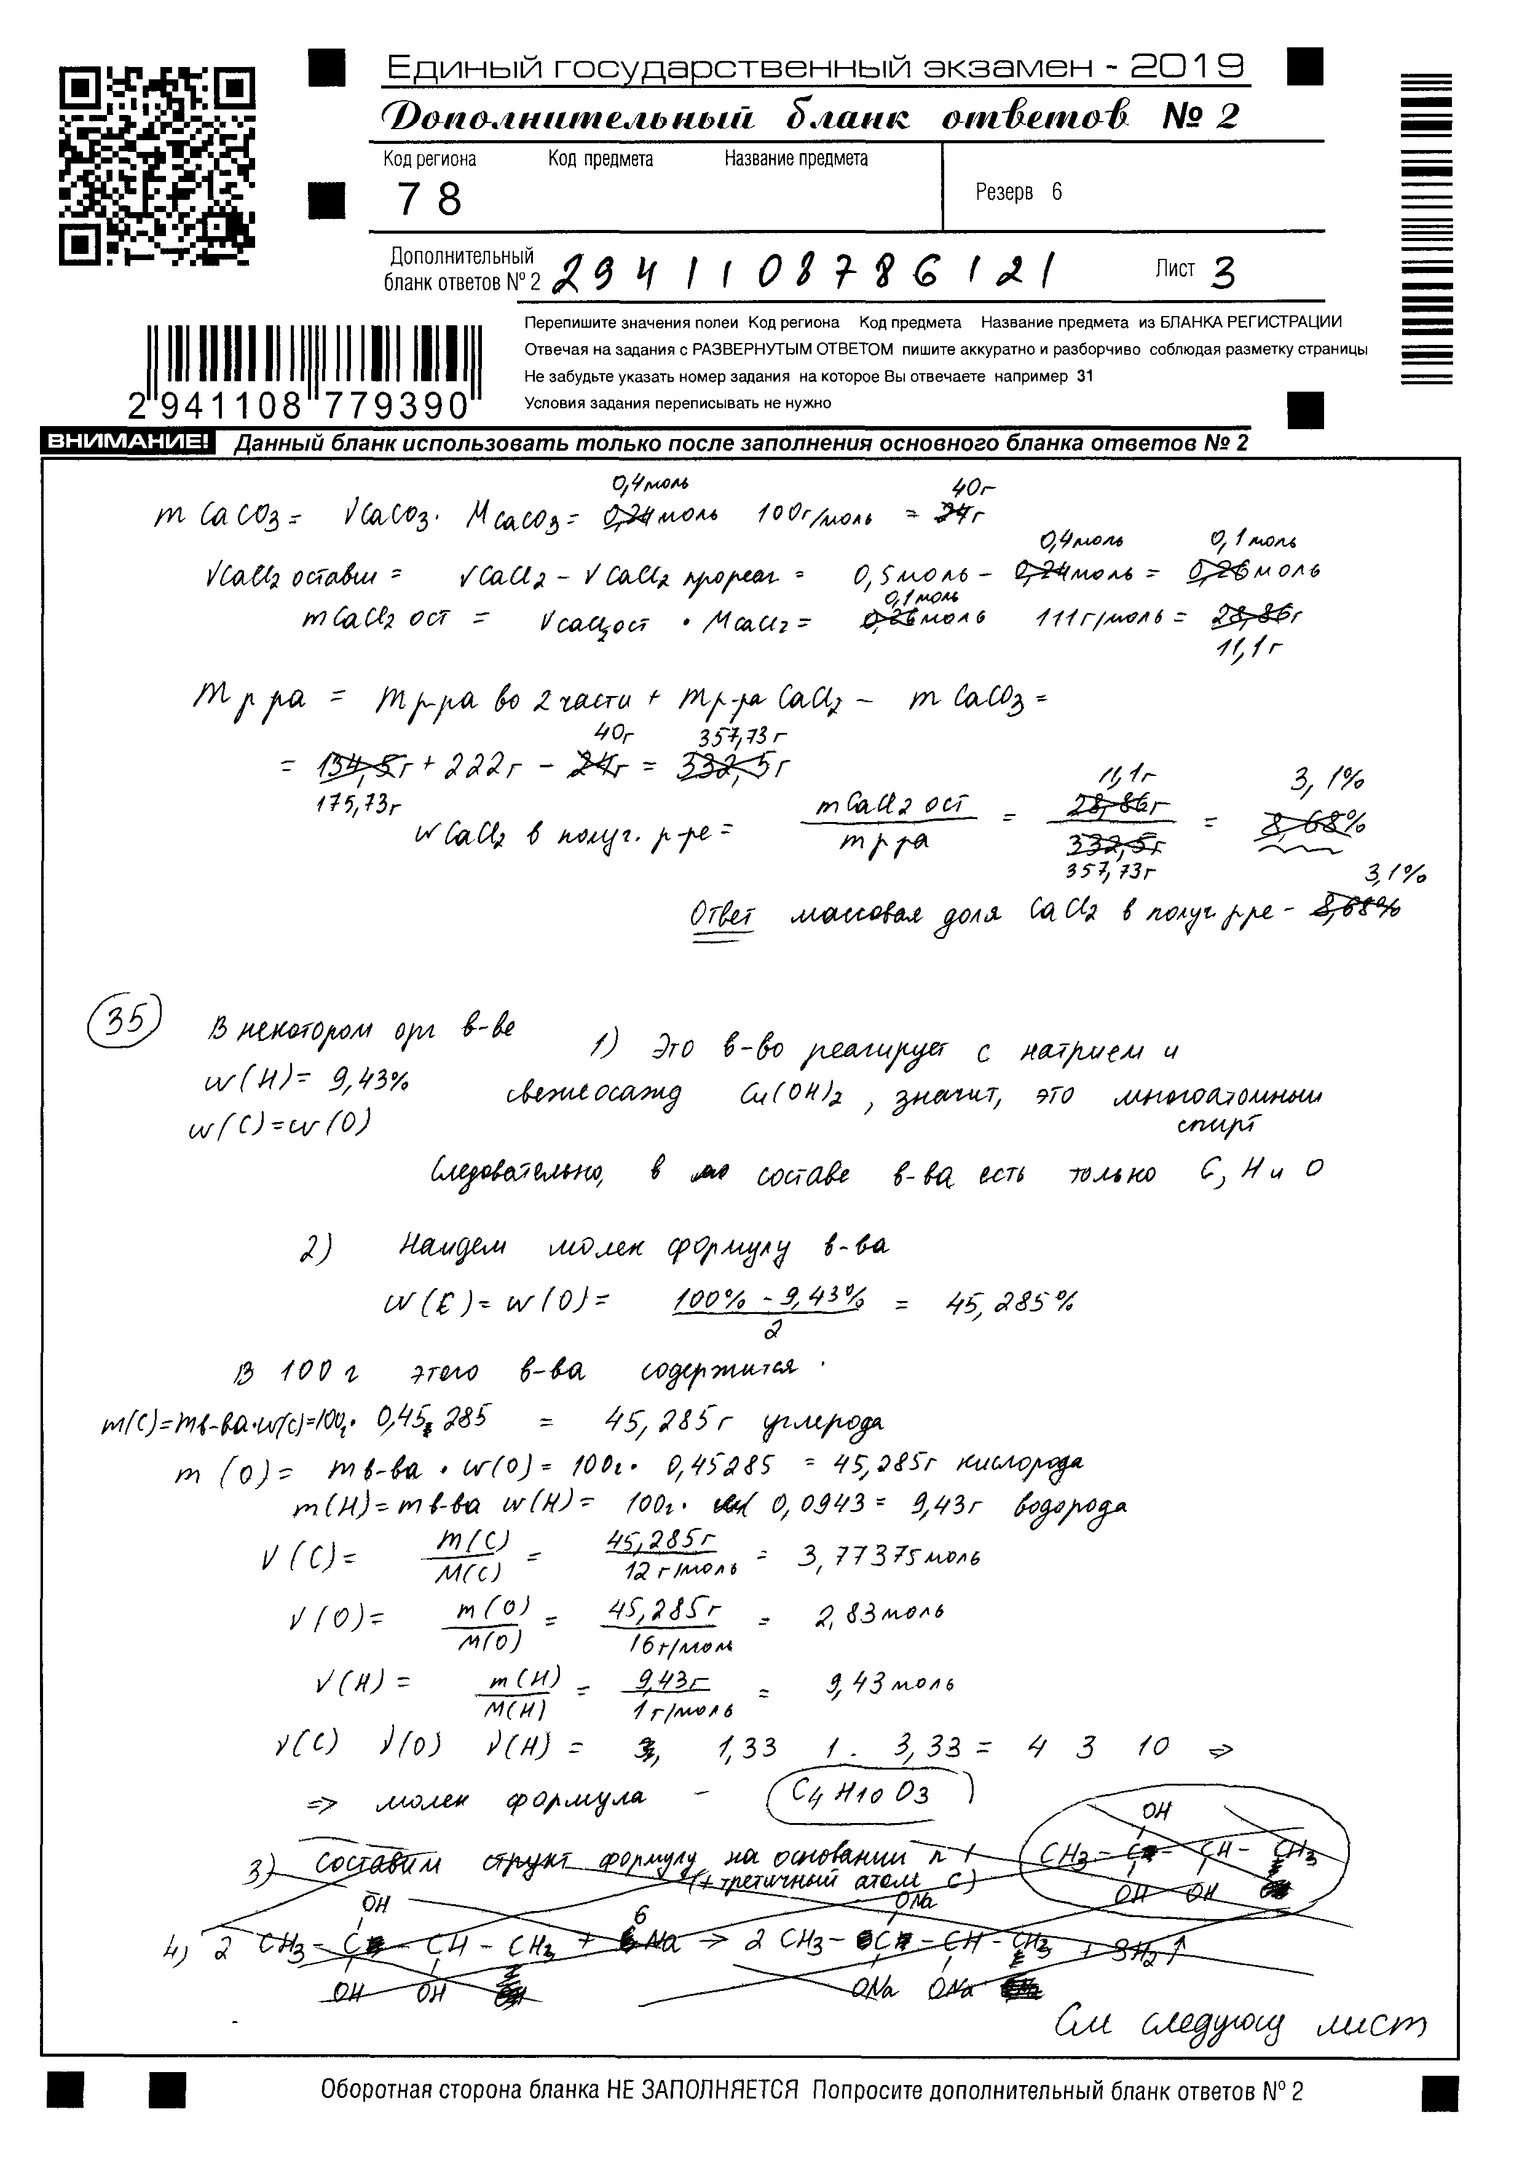 Единый государственный экзамен - 2019
Дополнительный бланк ответов № 2
Код региона Код предмета Название предмета
78
Резерв 6
Дополнительный бланк ответов № 2 2941108786121 Лист 3
Перепишите значения полей Код региона Код предмета Название предмета из БЛАНКА РЕГИСТРАЦИИ
Отвечая на задания с РАЗВЕРНУТЫМ ОТВЕТОМ пишите аккуратно и разборчиво соблюдая разметку страницы
Не забудьте указать номер задания на которое Вы отвечаете например 31
Условия задания переписывать не нужно
2 941108 779390
ВНИМАНИЕ! Данный бланк использовать только после заполнения основного бланка ответов № 2
0,4моль 40г
m CaCO3 = νCaCO3 · MCaCO3 = 0,24моль 100г/моль = 24г
0,4моль 0,1моль
νCaCl2 оставш = νCaCl2 - νCaCl2 прореаг = 0,5моль - 0,24моль = 0,26моль
0,1моль
mCaCl2 ост = νCaCl2ост · MCaCl2 = 0,26моль 111г/моль = 28,86г
11,1г
m р ра = m р-ра во 2 части + m р-ра CaCl2 - m CaCO3 =
40г 357,73г
= 134,5г + 222г - 24г = 332,5г
175,73г
11,1г 3,1%
w CaCl2 в получ. р-ре = mCaCl2 ост / m р ра = 28,86г / 332,5г = 8,68%
357,73г
3,1%
Ответ массовая доля CaCl2 в получ. р ре - 8,68%
35 В некотором орг в-ве
1) Это в-во реагирует с натрием и
w(H) = 9,43%
свежеосажд Cu(OH)2, значит, это многоатомный
w(C)=w(O)
спирт
Следовательно, в составе в-ва есть только C, H и O
2) Найдем молек формулу в-ва
w(C) = w(O) = 100% - 9,43% / 2 = 45,285%
В 100 г этого в-ва содержится
m(C)=mв-ва·w(C)=100г· 0,45285 = 45,285г углерода
m(O) = mв-ва · w(O) = 100г· 0,45285 = 45,285г кислорода
m(H) = mв-ва w(H) = 100г· 0,0943 = 9,43г водорода
ν(C) = m(C) / M(C) = 45,285г / 12г/моль = 3,77375моль
ν(O) = m(O) / M(O) = 45,285г / 16г/моль = 2,83моль
ν(H) = m(H) / M(H) = 9,43г / 1г/моль = 9,43моль
ν(C) ν(O) ν(H) = 1,33 1. 3,33 = 4 3 10 ⇒
⇒ молек формула - C4H10O3
OH
3) Составим структ формулу на основании п 1 CH3 - C - CH - CH3
(+ третичный атом C) OH OH
OH 6 ONa
4) 2 CH3 - C - CH - CH3 + Na → 2 CH3 - C - CH - CH3 + 3H2↑
OH OH ONa ONa
См следующ лист
Оборотная сторона бланка НЕ ЗАПОЛНЯЕТСЯ Попросите дополнительный бланк ответов № 2